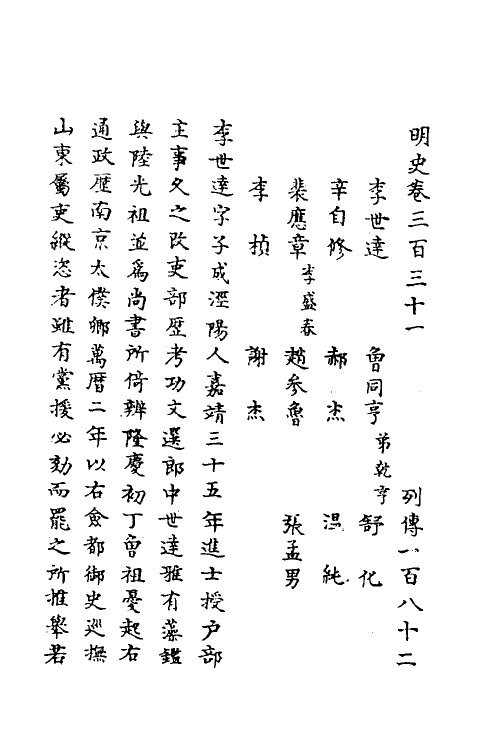 明史卷三百三十一 列傳一百八十二
李世達 魯同亨 弟乾亨 舒化
辛自修 郝杰 温純
裴應章 李盛春 趙参魯 張孟男
李楨 謝杰
李世達字子成涇陽人嘉靖三十五年進士授户部
主事久之改吏部歷考功文選郎中世達雅有藻鑑
與陸光祖並為尚書所倚辦隆慶初丁曾祖憂起右
通政歷南京太僕卿萬曆二年以右僉都御史巡撫
山東屬吏縱恣者雖有黨援必劾而罷之所推舉若